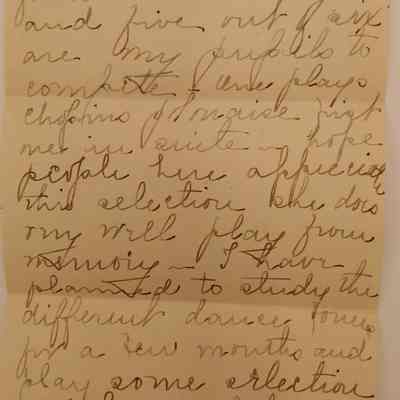 and five out of six
are my pupils to
compete - one plays
Chopins polonaise first
one in suite - hope
people here appreciate
this selection she does
very well play from
memory - I have
planned to study the
different dance tones
for a few months and
play some selection